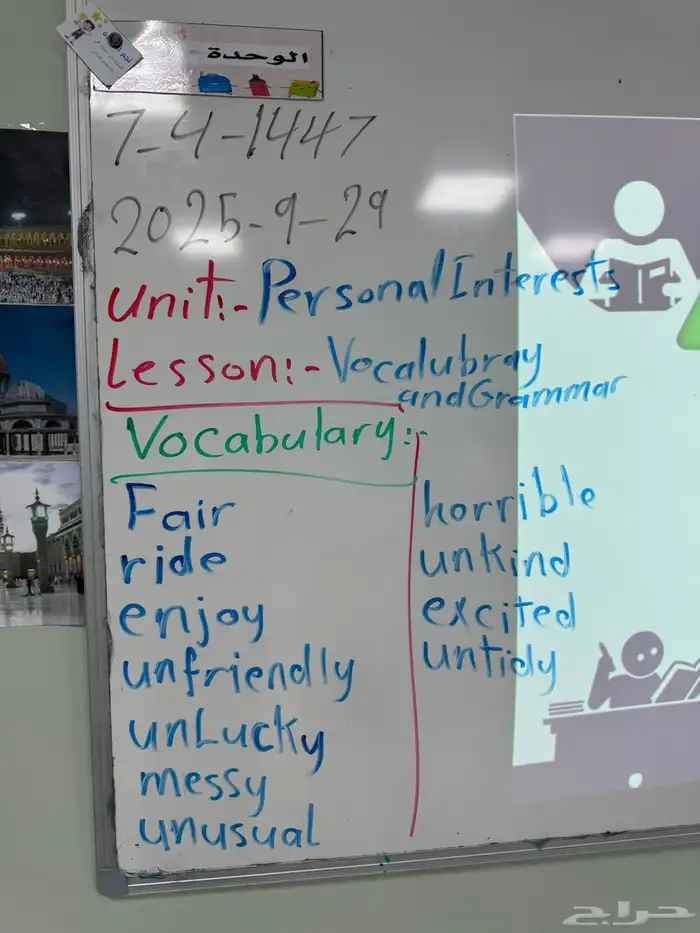 الوحدة
7-4-1447
2025-9-29
unit:- Personal Interests
Lesson:- Vocalubray
and Grammar
Vocabulary:-
Fair
ride
enjoy
unfriendly
unLucky
messy
unusual
horrible
unkind
excited
untidy
حراج